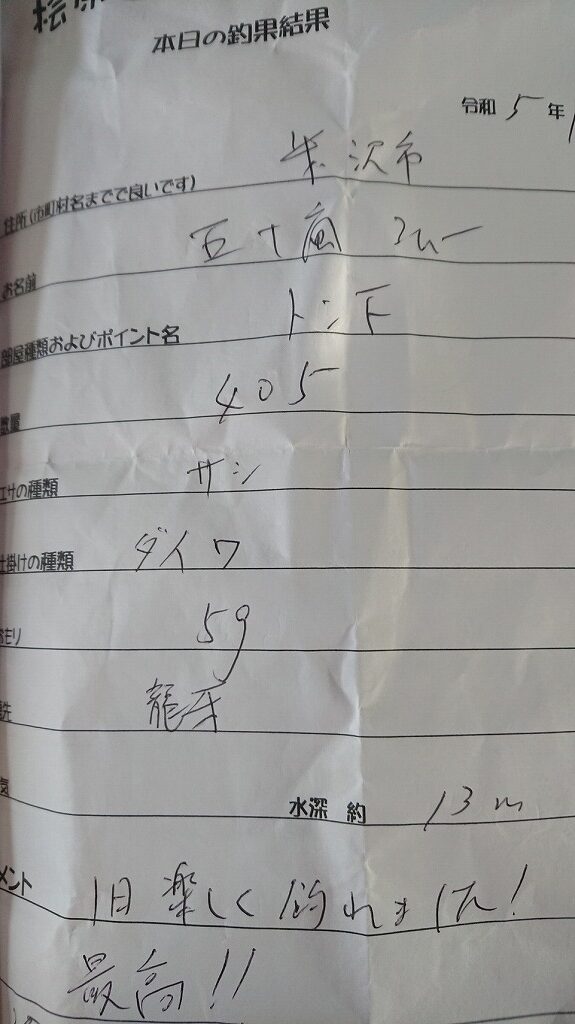 桧原
本日の釣果結果
令和 5 年
米沢市
住所(市町村名までで良いです)
五十嵐
お名前
トン下
部屋種類およびポイント名
405
数量
サシ
エサの種類
ダイワ
仕掛けの種類
5g
おもり
龍牙
先
水深 約 13m
メント
1日楽しく釣れました!
最高!!